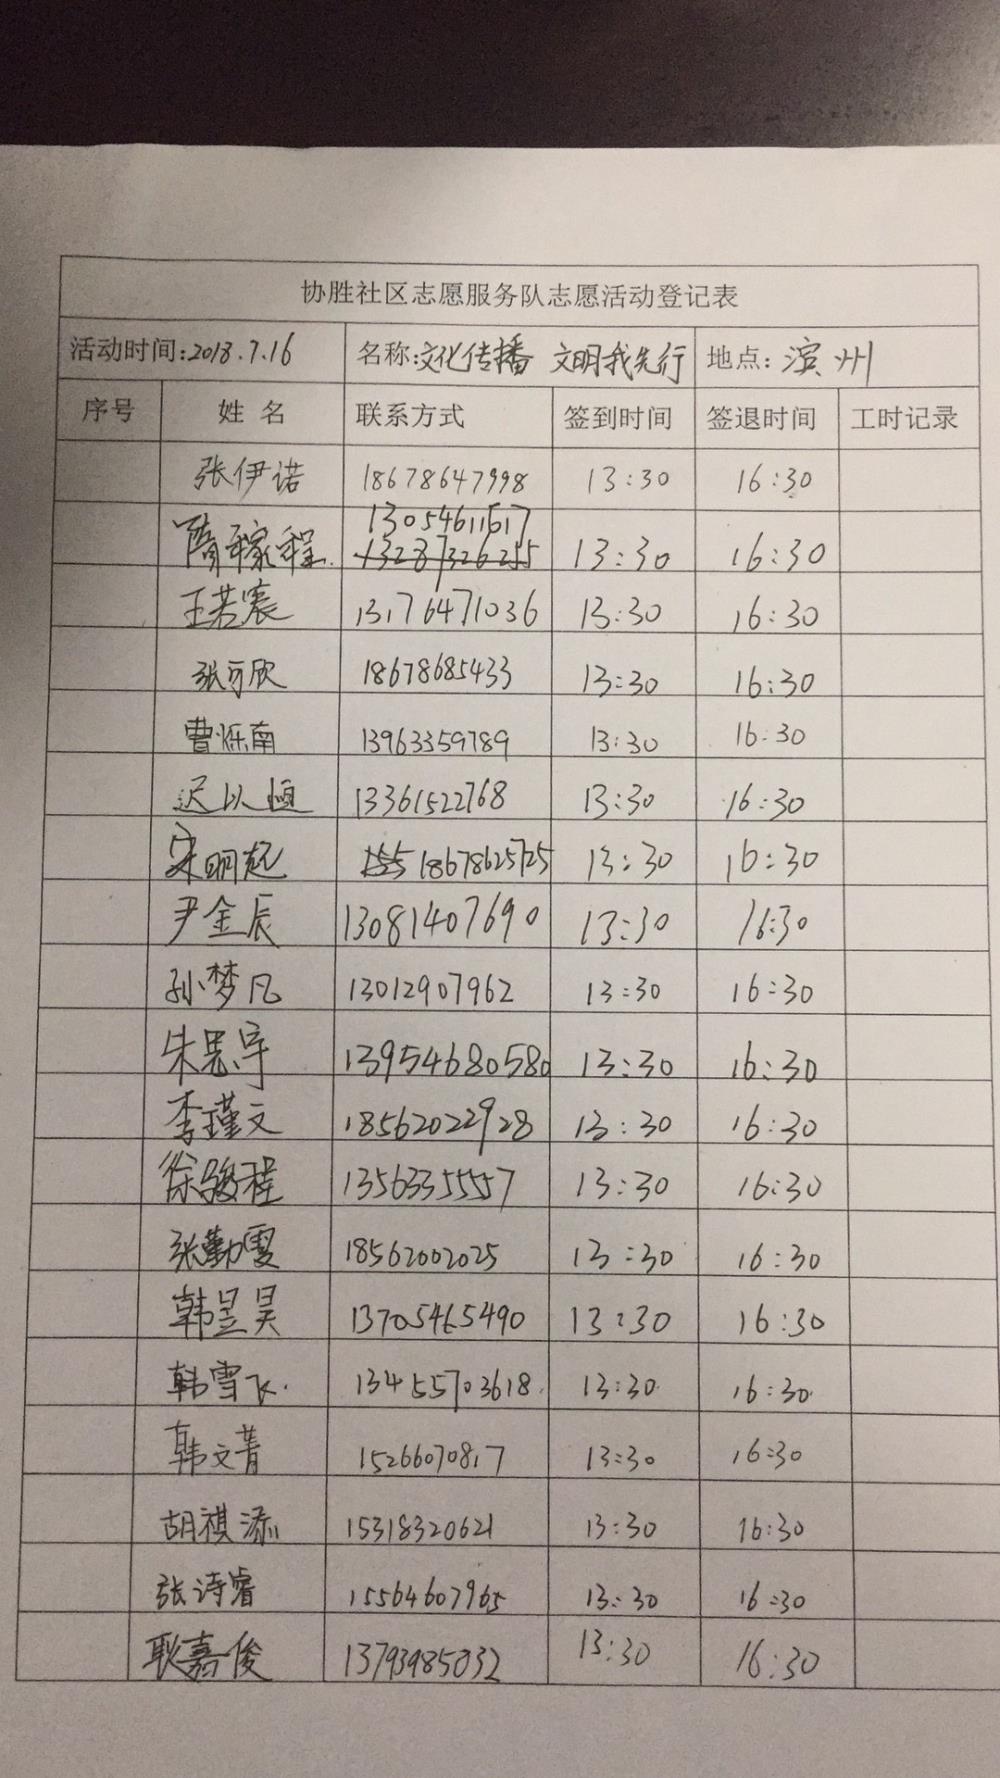 协胜社区志愿服务队志愿活动登记表
活动时间:2018.7.16 名称:文化传播 文明我先行 地点:滨州
序号 姓名 联系方式 签到时间 签退时间 工时记录
张伊诺 18678647998 13:30 16:30
13054611617
隋稼程 13287326255 13:30 16:30
王若宸 13176471036 13:30 16:30
张可欣 18678685433 13:30 16:30
曹烁南 13963359789 13:30 16:30
迟以恒 13361522768 13:30 16:30
宋明起 155 18678625725 13:30 16:30
尹金辰 13081407690 13:30 16:30
孙梦凡 13012907962 13:30 16:30
朱思宇 13954680580 13:30 16:30
李瑾文 18562022928 13:30 16:30
徐骏程 13563355557 13:30 16:30
张勤雯 18562002025 13:30 16:30
韩昱昊 13705465490 13:30 16:30
韩雪飞 13455703618 13:30 16:30
韩文菁 15266070817 13:30 16:30
胡祺添 15318320621 13:30 16:30
张诗睿 15564607965 13:30 16:30
耿嘉俊 13793985032 13:30 16:30